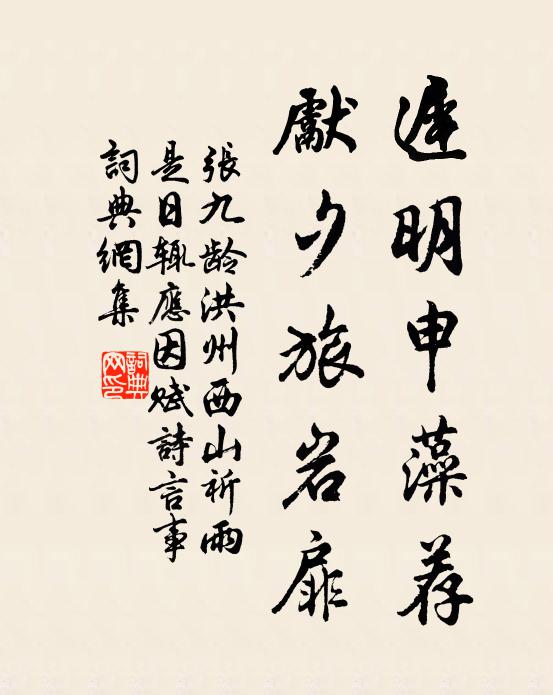 遲明申藻荐
獻夕旅岩扉
張九齡洪州西山祈雨
是日輒應因賦詩言事
詞典網集
詞典網印